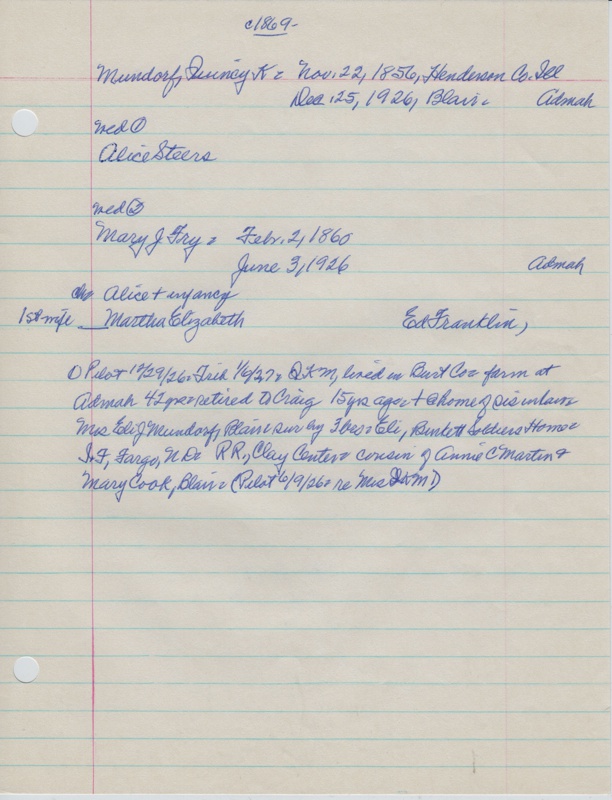 c1869-
Mundorf, Quincy K = Nov. 22, 1856, Henderson Co. Ill
Dec. 25, 1926, Blair = Admah
wed ①
Alice Steers
wed ②
Mary J Fry = Feb. 2, 1860
June 3, 1926 Admah
ch= Alice + infancy
1st wife Martha Elizabeth Ed Franklin,
① Pilot 12/29/26 = Trib 1/6/27 = QKM, lived in Burt Co = farm at
Admah 42 yrs = retired to Craig 15 yrs ago = + @ home of sis in law
Mrs Eli J Mundorf, Blair = sur by 3 bros = Eli, Burkett Soldiers Home =
I. F., Fargo, N.D. = R R., Clay Center = cousin of Annie C Martin &
Mary Cook, Blair = (Pilot 6/9/26 = re Mrs QKM)